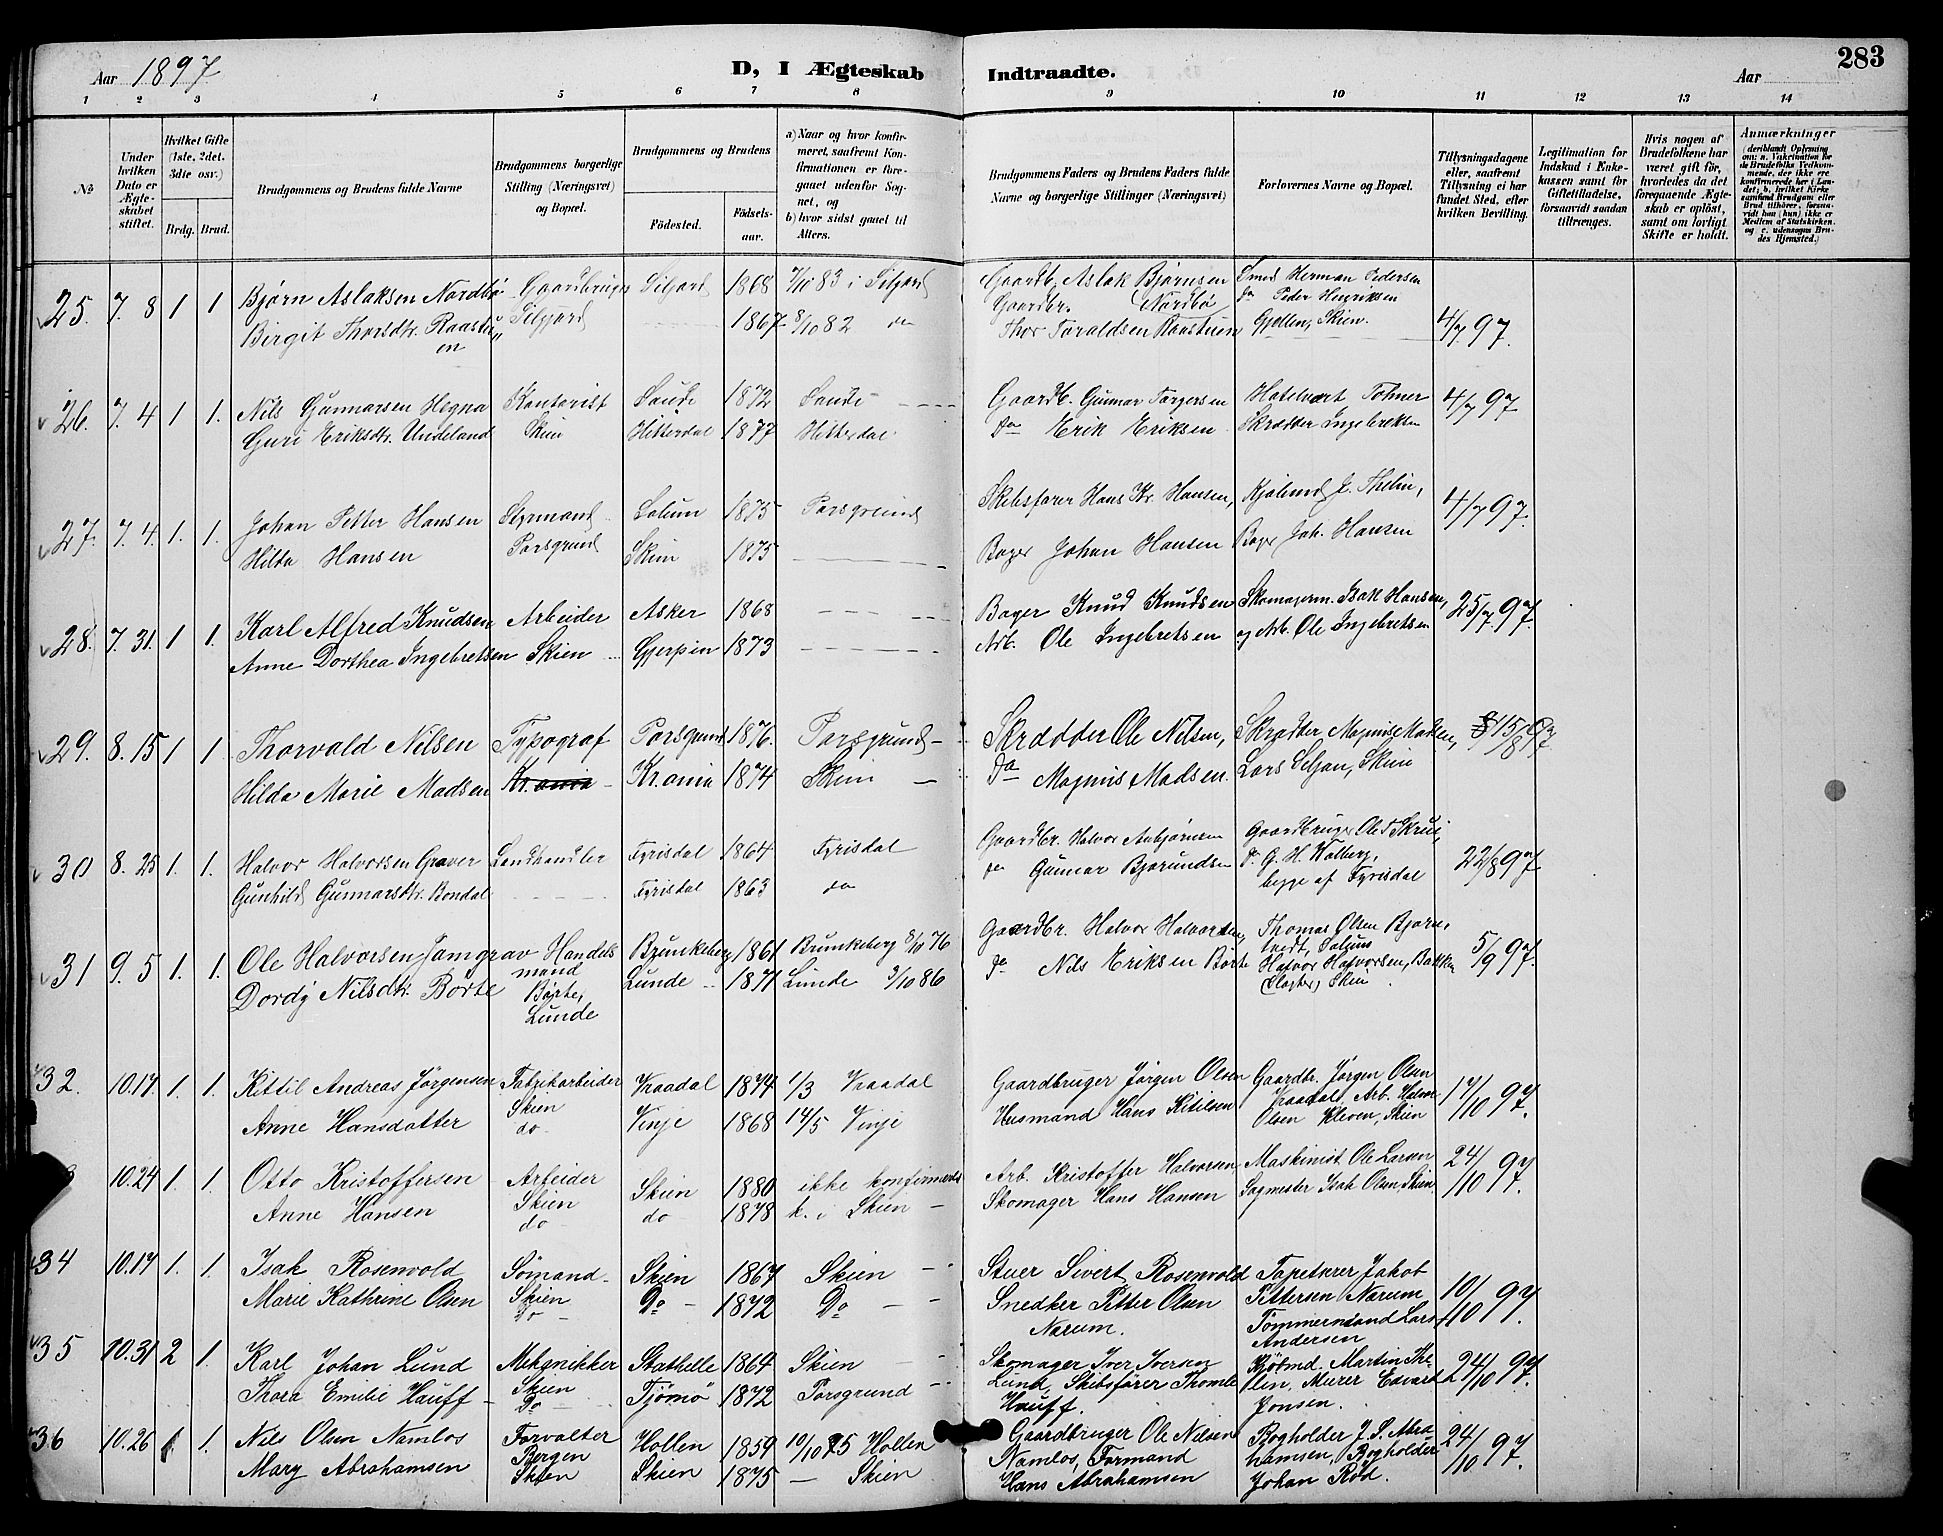 Aar 1897
D, I Ægteskab Indtraadte.
Aar
283
1 2 3 4 5 6 7 8 9 10 11 12 13 14
№
Under hvilken Dato er Ægteskabet stiftet.
Hvilket Gifte (1ste, 2det, 3die osv.)
Brdg. Brud.
Brudgommens og Brudens fulde Navne
Brudgommens borgerlige Stilling (Næringsvei) og Bopæl.
Brudgommens og Brudens
Fødested. Fødselsaar.
a) Naar og hvor konfirmeret, saafremt Konfirmationen er foregaaet udenfor Sognet, og
b) hvor sidst gaaet til Alters.
Brudgommens Faders og Brudens Faders fulde Navne og borgerlige Stillinger (Næringsvei)
Forlovernes Navne og Bopæl.
Tillysningsdagene eller, saafremt Tillysning ei har fundet Sted, efter hvilken Bevilling.
Legitimation for Indskud i Enkekassen samt for Giftetilladelse, forsaavidt saadan tiltrænges.
Hvis nogen af Brudefolkene har været gift før, hvorledes da det foregaaende Ægteskab er opløst, samt om lovligt Skifte er holdt.
Anmærkninger (deriblandt Oplysning om: a. Vakcination for de Brudefolks Vedkommende, der ikke ere konfirmerede her i Landet; b. hvilket Kirkesamfund Brudgom eller Brud tilhører, forsaavidt han (hun) ikke er Medlem af Statskirken, og c. udensogns Brudes Hjemsted.)
25. 7. 8 1 1 Bjørn Aslaksen Nordbø Gaardbruger Siljord 1868 7/10 83 i Siljord Gaardb. Aslak Bjørnsen Smed Herman Pedersen
Siljord Gaardbr. Nordbø do Peder Henriksen
Birgit Thorsdtr. Raastuen 1867 8/10 82 do Thor Toraldsen Raastuen Gjellen, Skien. 4/7 97.
26. 7. 4 1 1. Nils Gunnarsen Hegna Kontorist Saude 1872 Saude Gaardb. Gunnar Torgersen Hotelvært Tohner 4/7 97
Guri Eriksdtr. Undeland Skien Hitterdal 1877 Hitterdal do Erik Eriksen Skrædder Ingebretsen
27. 7. 4. 1. 1. Johan Petter Hansen Styrmand Solum 1875 Porsgrund Skibsfører Hans Kr. Hansen, Kjøbmd J. Thelin, 4/7 97.
Hilda Hansen Porsgrund Skien 1875 Bager Johan Hansen Bager Joh. Hansen
28. 7. 31. 1 1. Karl Alfred Knudsen Arbeider Asker 1868 Bager Knud Knudsen Skomagerm. Isak Hansen, 25/7 97.
Anne Dorthea Ingebretsen Skien Gjerpen 1873 Arb. Ole Ingebretsen og Arb. Ole Ingebretsen
29. 8. 15 1 1. Thorvald Nilsen Typograf Porsgrund 1876. Porsgrund Skrædder Ole Nilsen, Skrædder Magnus Madsen, 15/8 97
Hilda Marie Madsen Kr.ania Kr.ania 1874 Skien do Magnus Madsen. Lars Seljan, Skien
30 8. 25 1. 1. Halvor Halvorsen Graver Landhandler Fyrisdal 1864 Fyrisdal Gaardbr. Halvor Anbjørnsen Gaardbruger Ole T. Skrui, 22/8 97
Gunhild Gunnarsdtr. Bondal Fyrisdal 1863 do do Gunnar Bjorundsen do G. H. Kolberg,
begge af Fyrisdal
31 9. 5 1. 1. Ole Halvorsen Jamgrav Handelsmand Brunkeberg 1861 Brunkeberg 8/10 76 Gaardbr. Halvor Halvorsen, Thomas Olsen Bjørntvedt, Solum 5/9 97.
Dordy Nilsdtr. Børte Børte, Lunde Lunde 1871 Lunde 3/10 86 do Nils Eriksen Børte Halvor Halvorsen, Bakken
Closter, Skien
32. 10.17 1. 1. Kittil Andreas Jørgensen Fabrikarbeider Kraadal 1874 1/3 Kraadal Gaardbruger Jørgen Olsen Gaardbr. Jørgen Olsen 17/10 97.
Skien Kraadal, Arb. Halvor
Anne Hansdatter do Vinje 1868 14/5 Vinje Husmand Hans Kitilsen Olsen Kleven, Skien
10.24 1. 1. Otto Kristoffersen Arbeider Skien 1880 ikke konfirmeret Arb. Kristoffer Halvorsen Maskinist Ole Larsen 24/10 97.
Anne Hansen Skien do do 1878 k. i Skien Skomager Hans Hansen Sagmester Isak Olsen, Skien
34 10.17 1. 1. Isak Rosenvold Sømand Skien 1867 Skien Stuer Sivert Rosenvold Tapetserer Jakob
Marie Kathrine Olsen Skien Do Do 1872 Do Snedker Petter Olsen Pettersen Narum 10/10 97.
Narum. Tømmermand Lars
Andersen
35 10.31 2 1. Karl Johan Lund Mekanikker Stathelle 1864 Skien Skomager Iver Iversen Kjøbmd. Martin The- 24/10 97
Thora Emilie Hauff Skien Do Tjømø 1872 Porsgrund Lund, Skibsfører Thomle lin, Murer Edvard
Hauff. Jonsen.
36 10.26 1. 1. Nils Olsen Namlos Forvalter Hollen 1859 10/10 75 Hollen Gaardbruger Ole Nilsen Bogholder J. S. Abra- 24/10 97.
Bergen Namlos, Formand hamsen, Bogholder
Mary Abrahamsen Skien Skien 1875 — Skien Hans Abrahamsen Johan Rød.